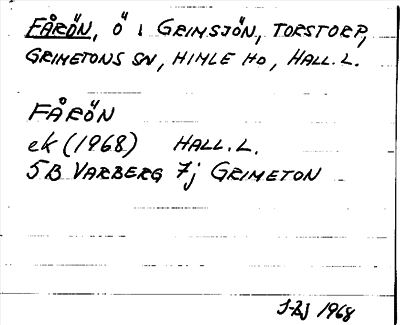 FÅRÖN, Ö I GRIMSJÖN, TORSTORP,
GRIMETONS SN, HIMLE HD, HALL. L.
FÅRÖN
ek (1968) HALL. L.
5B VARBERG 7j GRIMETON
1968